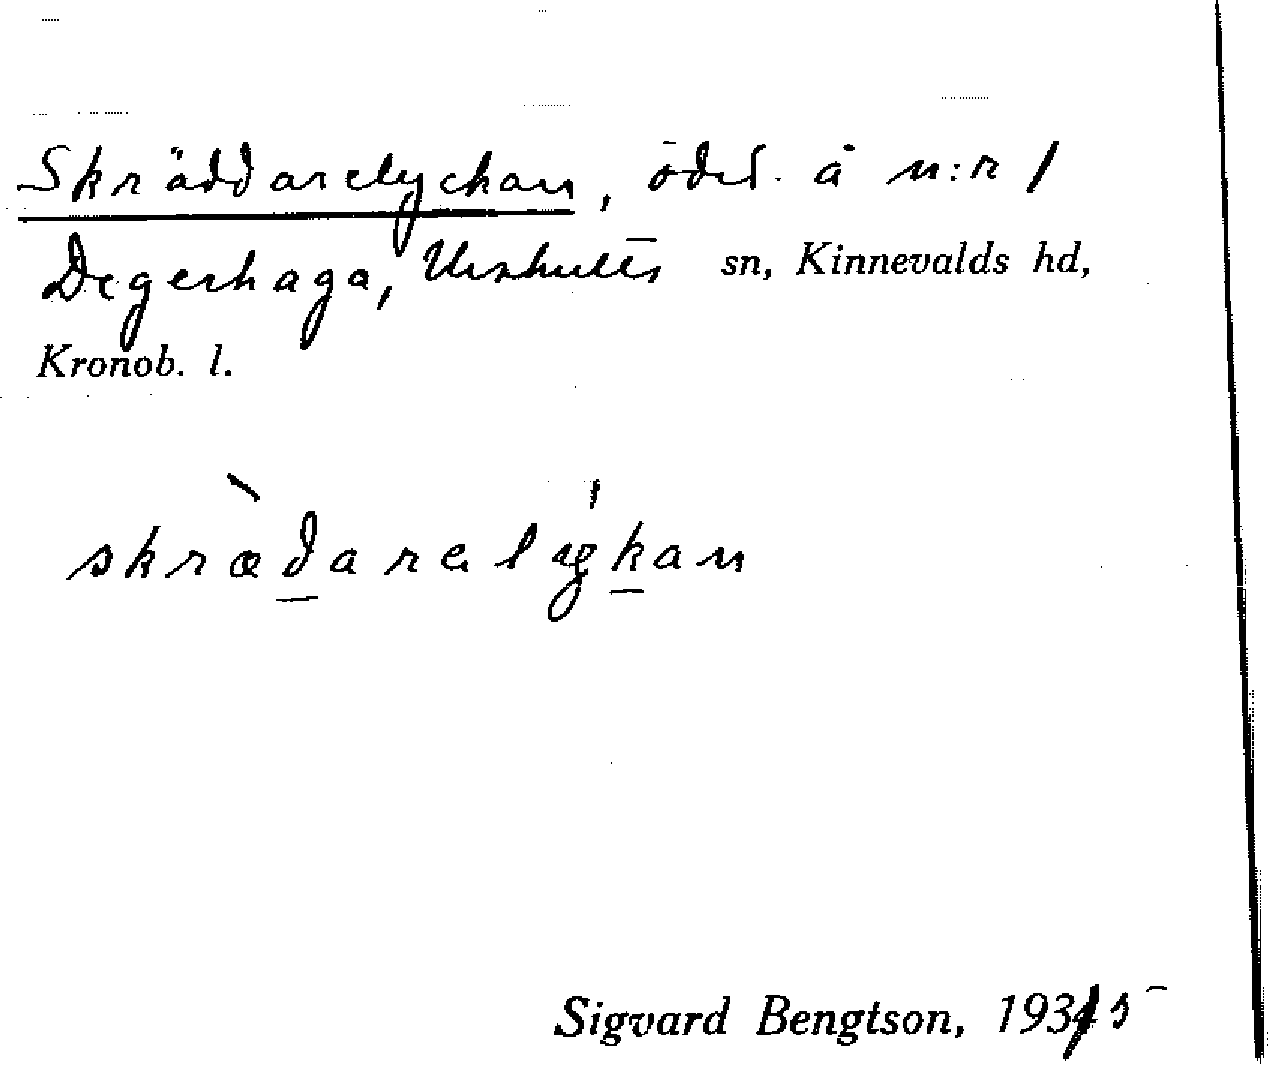 Skräddarelyckan, ödel. å n:r 1
Degerhaga, Urshults sn, Kinnevalds hd,
Kronob. l.
skræ̀daralýkan
Sigvard Bengtson, 1935